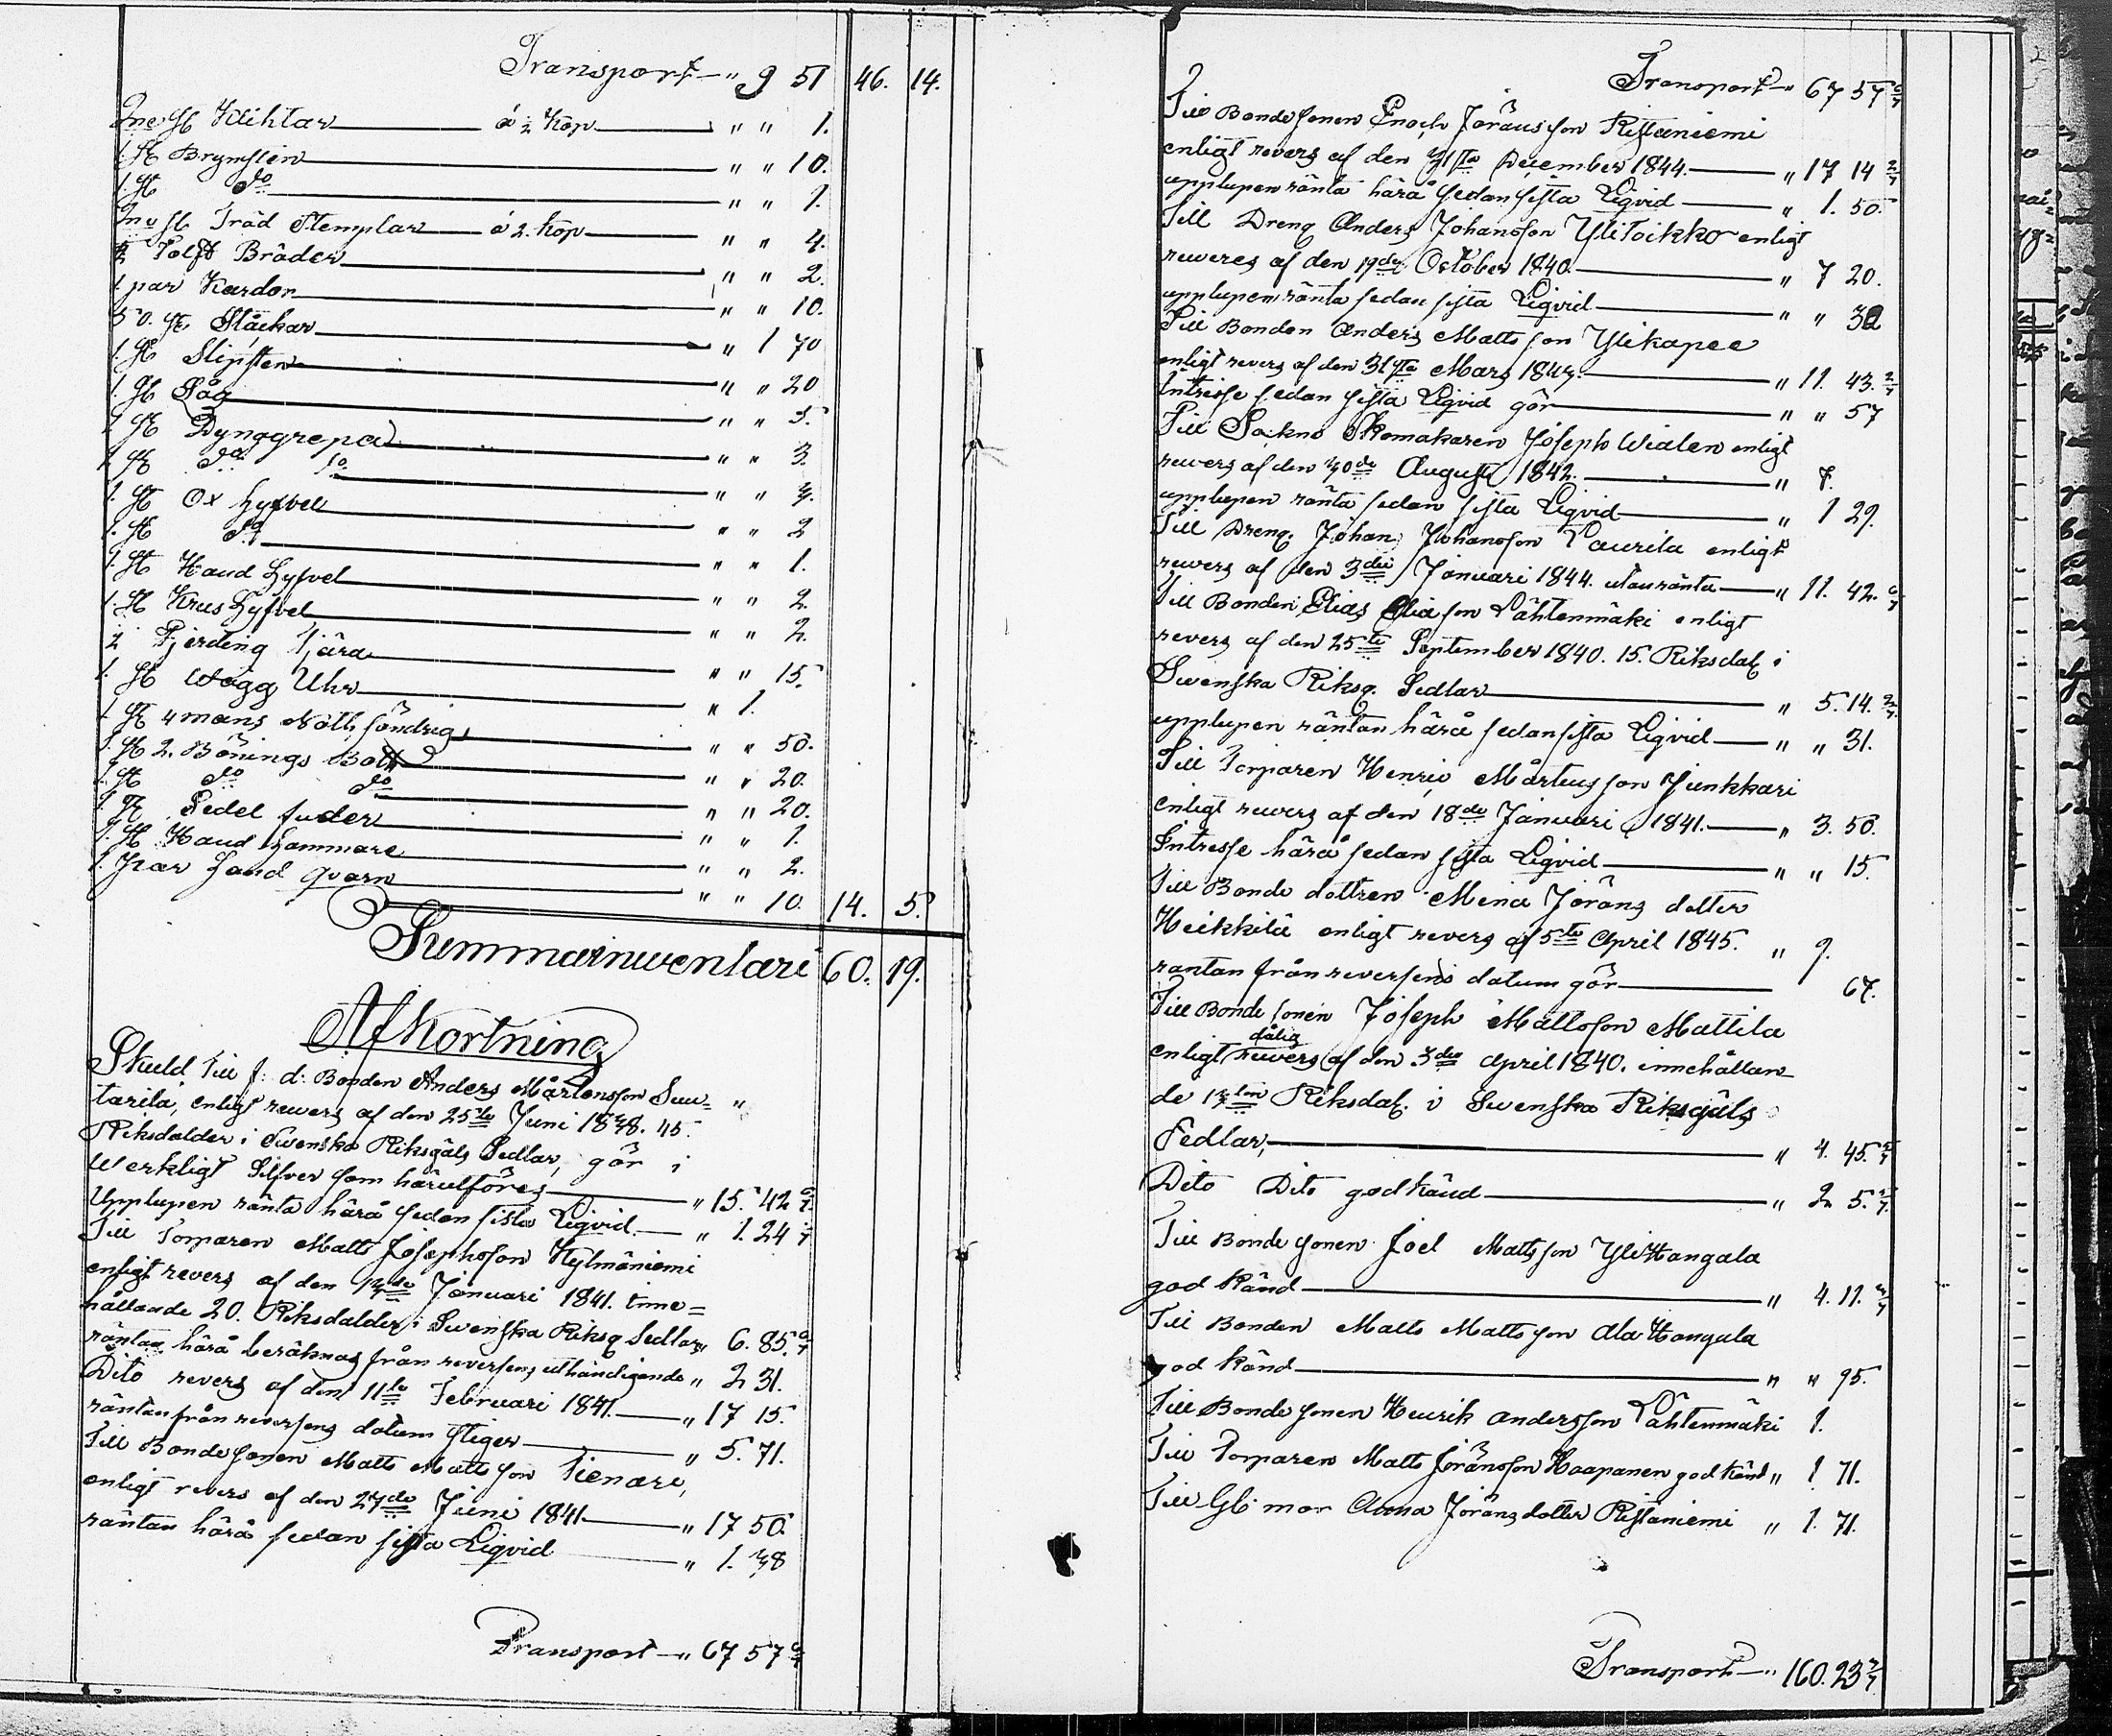 Transport — " 9 51 46. 14.
2ne st Klihtar á ½ Kop " " 1.
1. st Brynsten " " 10.
1. st do " " 1.
2ne st Träd Stemplar á 2. Kop " " 4.
½ Tolft Bräder " " 2.
1 par Kardor " " 10.
50. st. Stäckar " 1 70
1. st Slipsten " " 20
1. st Såg " " 5.
1 st Dynggrepa " " 3.
1. st do do " "
1. st Ox hyfvel " " 2
1. st do " " 1.
1. st Hand Hyfvel " " 2.
1. st Krus Hyfvel " " 2.
½ Fjerding Tjära " " 15.
1. st Wägg Uhr " 1.
1 st 4 mans Nött, söndrig " " 50.
1. st 2. Bönings Bott " " 20.
1. st do do " " 20.
1. st Sedel fuder " " 1.
1. st Hand hammare " " 2.
1. Par hand Qvarn " " 10. 14. 5.
Summa inventari 60. 19.
Afkortning
Skuld till f: d: Bonden Anders Mårtensson Suu= "
tarila, enligt revers af den 25te Juni 1838. 45.
Riksdalder i Svenska Riksgäls Sedlar, gör i
Werkligt Silfver som härutföres " 15. 42 6/7
Upplupen ränta härå sedan sista Liqvid " 1. 24
Till Torparen Matts Josephsson Hylmäniemi
enligt revers af den 13de Januari 1841. inne=
hållande 20. Riksdalder i Svenska Riksg. Sedlar " 6. 85. 5/7
räntan härå beräknas från reversens uthändigande " 2 31.
Dito revers af den 11te Februari 1841. " 17 15.
räntan från reversens datum stiger " 5. 71.
Till Bonde sonen Matts Mattsson Tienari,
enligt revers af den 27de Juni 1841. " 17 50.
räntan härå sedan sista Liqvid " 1. 38
Transport — " 67 57 6/7
Transport — " 67 57 6/7
Till Bonde sonen Enoch Jöransson Ristaniemi
enligt revers af den 31sta December 1844. " 17 14 2/7
upplupen ränta härå sedan sista Liqvid " 1. 50.
Till Dreng Anders Johansson Ylitoikko enligt
revers af den 19de October 1840. " 7 20.
upplupen ränta sedan sista Liqvid " " 32
Till Bonden Anders Mattsson Ylikapee
enligt revers af den 31sta Mars 1843. " 11. 43. 2/7
Intresse sedan sista Liqvid gör " " 57
Till Sockne Skomakaren Joseph Wialen enligt
revers af den 30de Augusti 1842. " 7.
upplupen ränta sedan sista Liqvid " 1 29.
Till Dreng. Johan Johansson Laurila enligt
revers af den 3die Januari 1844. utan ränta " 11. 42. 6/7
Till Bonden Elias Eliasson Lähtenmäki enligt
revers af den 25te September 1840. 15. Riksdal. i
Svenska Riksg. Sedlar " 5. 14. 2/7
upplupen räntan härå sedan sista Liqvid " " 31.
Till Torparen Henric Mårtensson Junkkari
enligt revers af den 18de Januari 1841. " 3. 50.
Intresse härå sedan sista Liqvid " " 15.
Till Bonde dottren Mina Jörans dotter
Heikkilä enligt revers af 5te April 1845. " 9.
räntan från reversens datum gör 67.
Till Bonde sonen Joseph Mattsson Mattila
enligt dålig revers af den 3die April 1840. innehållan-
de 13ton Riksdal. i Svenska Riksgäls
Sedlar, " 4. 45. 5/7
Dito Dito godkänd " 2 5. 5/7
Till Bonde sonen Joel Mattsson Ylihangala
god känd " 4. 11. 3/7
Till Bonden Matts Mattsson Alahangala
god känd " " 95.
Till Bonde sonen Henrik Andersson Lähtenmäki 1.
Till Torparen Matts Jöransson Haapanen god känd " 1 71.
Till Gl: mor Anna Jörans dotter Ristaniemi " 1. 71.
Transport — " 160. 23 2/7